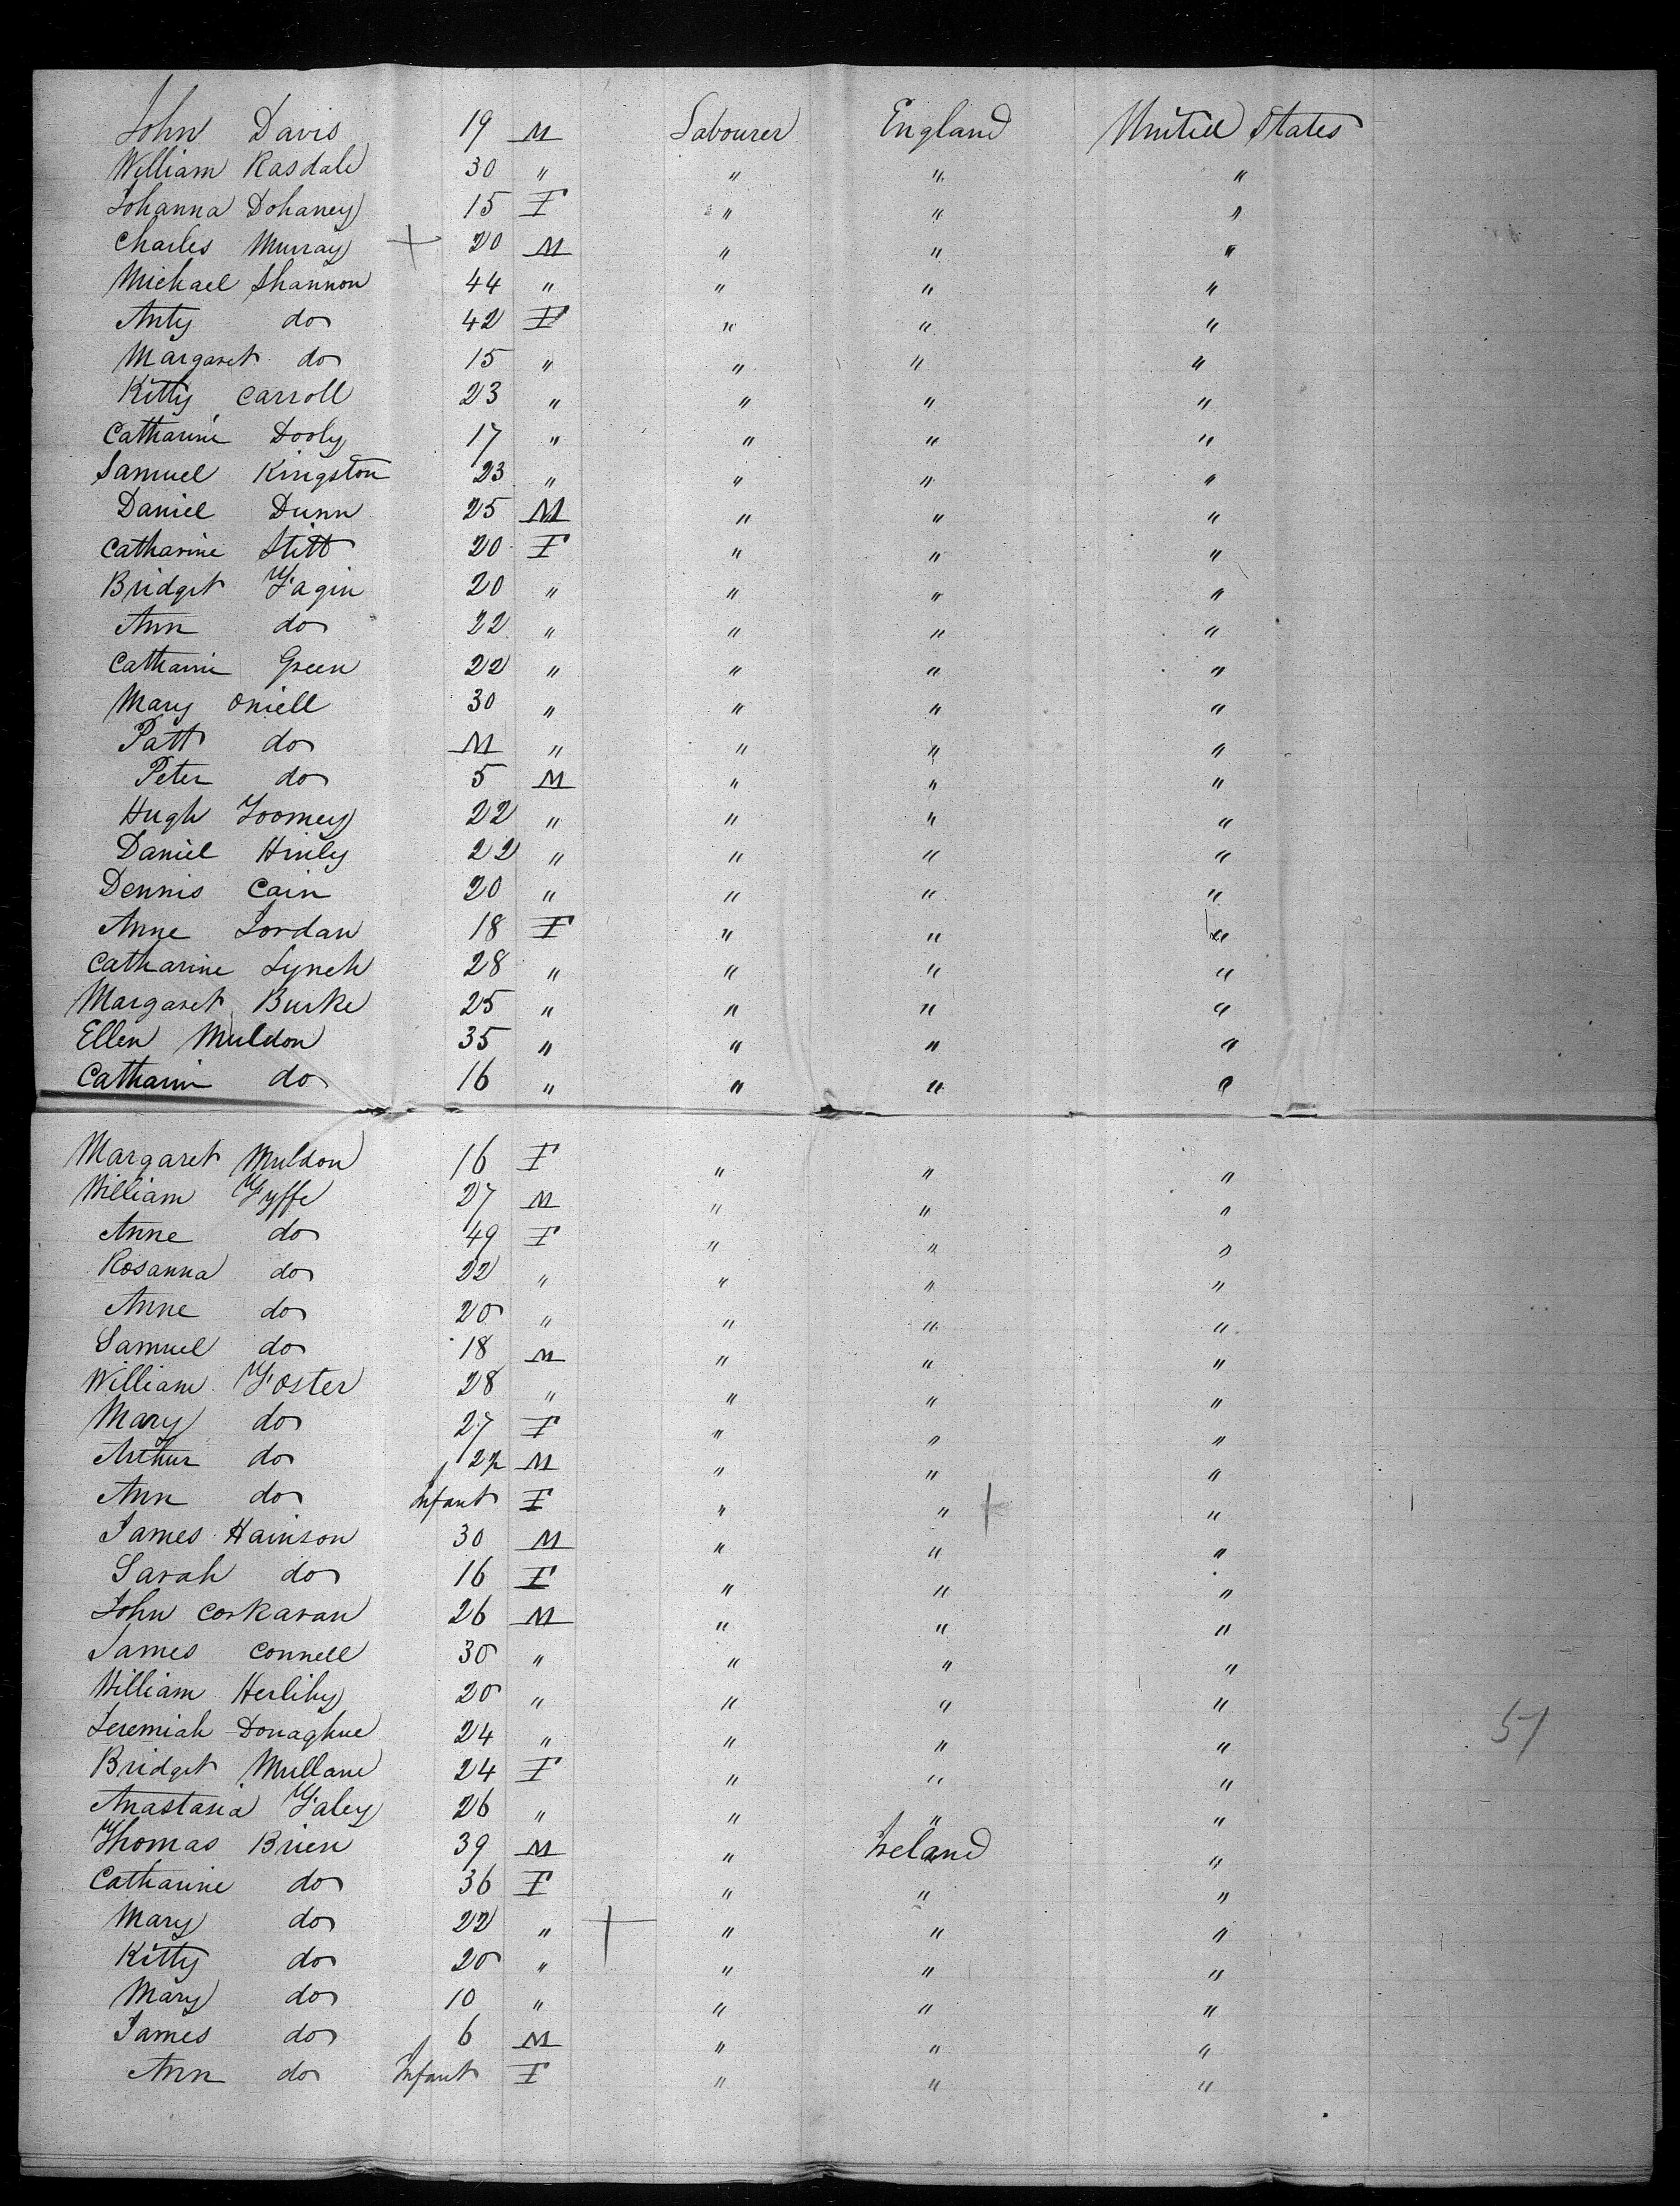 John Davis 19 M Labourer England United States
William Rasdale 30 " " " "
Johanna Dohaney 15 F " " "
Charles Murray + 20 M " " "
Michael Shannon 44 " " " "
Anty do 42 F " " "
Margaret do 15 " " " "
Kitty Carroll 23 " " " "
Catharine Dooly 17 " " " "
Samuel Kingston 23 " " " "
Daniel Dunn 25 M " " "
Catharine Stitt 20 F " " "
Bridget Fagin 20 " " " "
Ann do 22 " " " "
Catharine Green 22 " " " "
Mary Oniell 30 " " " "
Patt do M " " " "
Peter do 5 M " " "
Hugh Toomey 22 " " " "
Daniel Hinly 22 " " " "
Dennis Cain 20 " " " "
Anne Jordan 18 F " " "
Catharine Lynch 28 " " " "
Margaret Burke 25 " " " "
Ellen Muldon 35 " " " "
Catharin do 16 " " " "
Margaret Muldon 16 F " " "
William Fyffe 27 M " " "
Anne do 49 F " " "
Rosanna do 22 " " " "
Anne do 20 " " " "
Samuel do 18 M " " "
William Foster 28 " " " "
Mary do 27 F " " "
Arthur do M " " "
Ann do Infant F " " + "
James Hainson 30 M " " "
Sarah do 16 F " " "
John Corkaran 26 M " " "
James Connell 30 " " " "
William Herlihy 20 " " " "
Jeremiah Donaghue 24 " " " " 51
Bridget Mullane 24 F " " "
Anastasia Faley 26 " " " "
Thomas Brien 39 M " Ireland "
Catharine do 36 F " " "
Mary do 22 " + " " "
Kitty do 20 " " " "
Mary do 10 " " " "
James do 6 M " " "
Ann do Infant F " " "